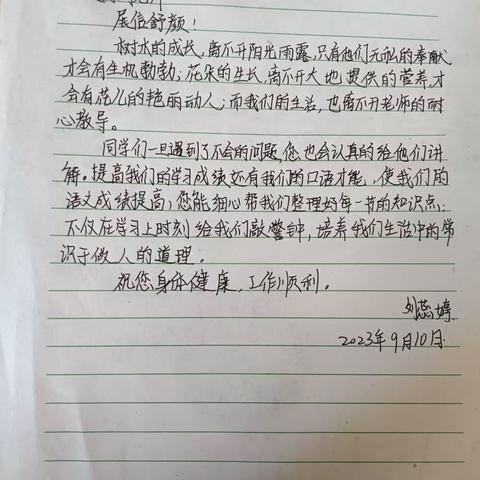 展信舒颜!
树木的成长,离不开阳光雨露,只有他们无私的奉献
才会有生机勃勃;花朵的生长,离不开大地提供的营养,才
会有花儿的艳丽动人;而我们的生活,也离不开老师的耐
心教导。
同学们一旦遇到了不会的问题,您也会认真的给他们讲
解。提高我们的学习成绩还有我们的口语才能,使我们的
语文成绩提高;您能细心帮我们整理好每一节的知识点;
不仅在学习上时刻给我们敲警钟,培养我们生活中的常
识于做人的道理。
祝您身体健康,工作顺利。
刘蕊婷
2023年9月10日